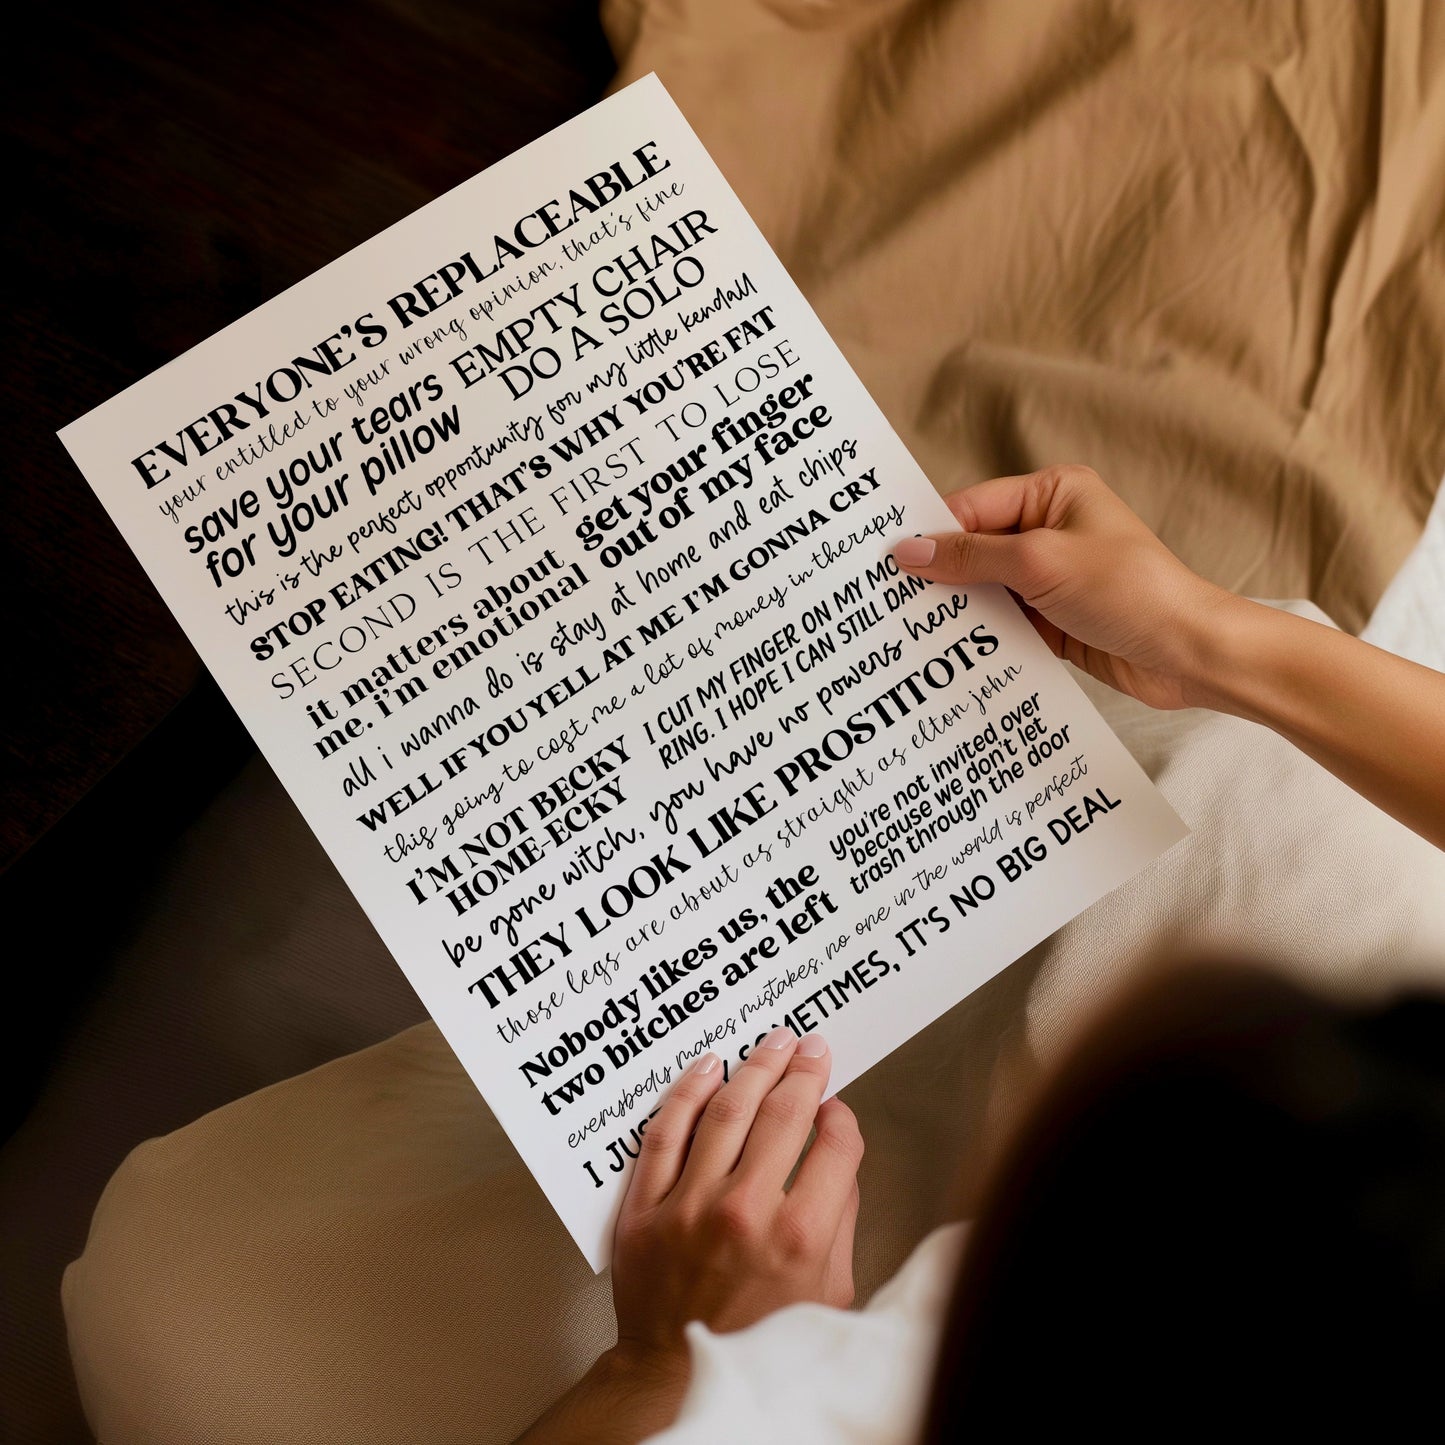 EVERYONE'S REPLACEABLE
your entitled to your wrong opinion, that's fine
save your tears
for your pillow
EMPTY CHAIR
DO A SOLO
this is the perfect opportunity for my little kendall
STOP EATING! THAT'S WHY YOU'RE FAT
SECOND IS THE FIRST TO LOSE
it matters about
me. i'm emotional
get your finger
out of my face
all i wanna do is stay at home and eat chips
WELL IF YOU YELL AT ME I'M GONNA CRY
this going to cost me a lot of money in therapy
I'M NOT BECKY
HOME-ECKY
I CUT MY FINGER ON MY
RING. I HOPE I CAN STILL
be gone witch, you have no powers here
THEY LOOK LIKE PROSTITOTS
those legs are about as straight as elton john
Nobody likes us, the
two bitches are left
you're not invited over
because we don't let
trash through the door
everybody makes mistakes. no one in the world is perfect
I SOMETIMES, IT'S NO BIG DEAL